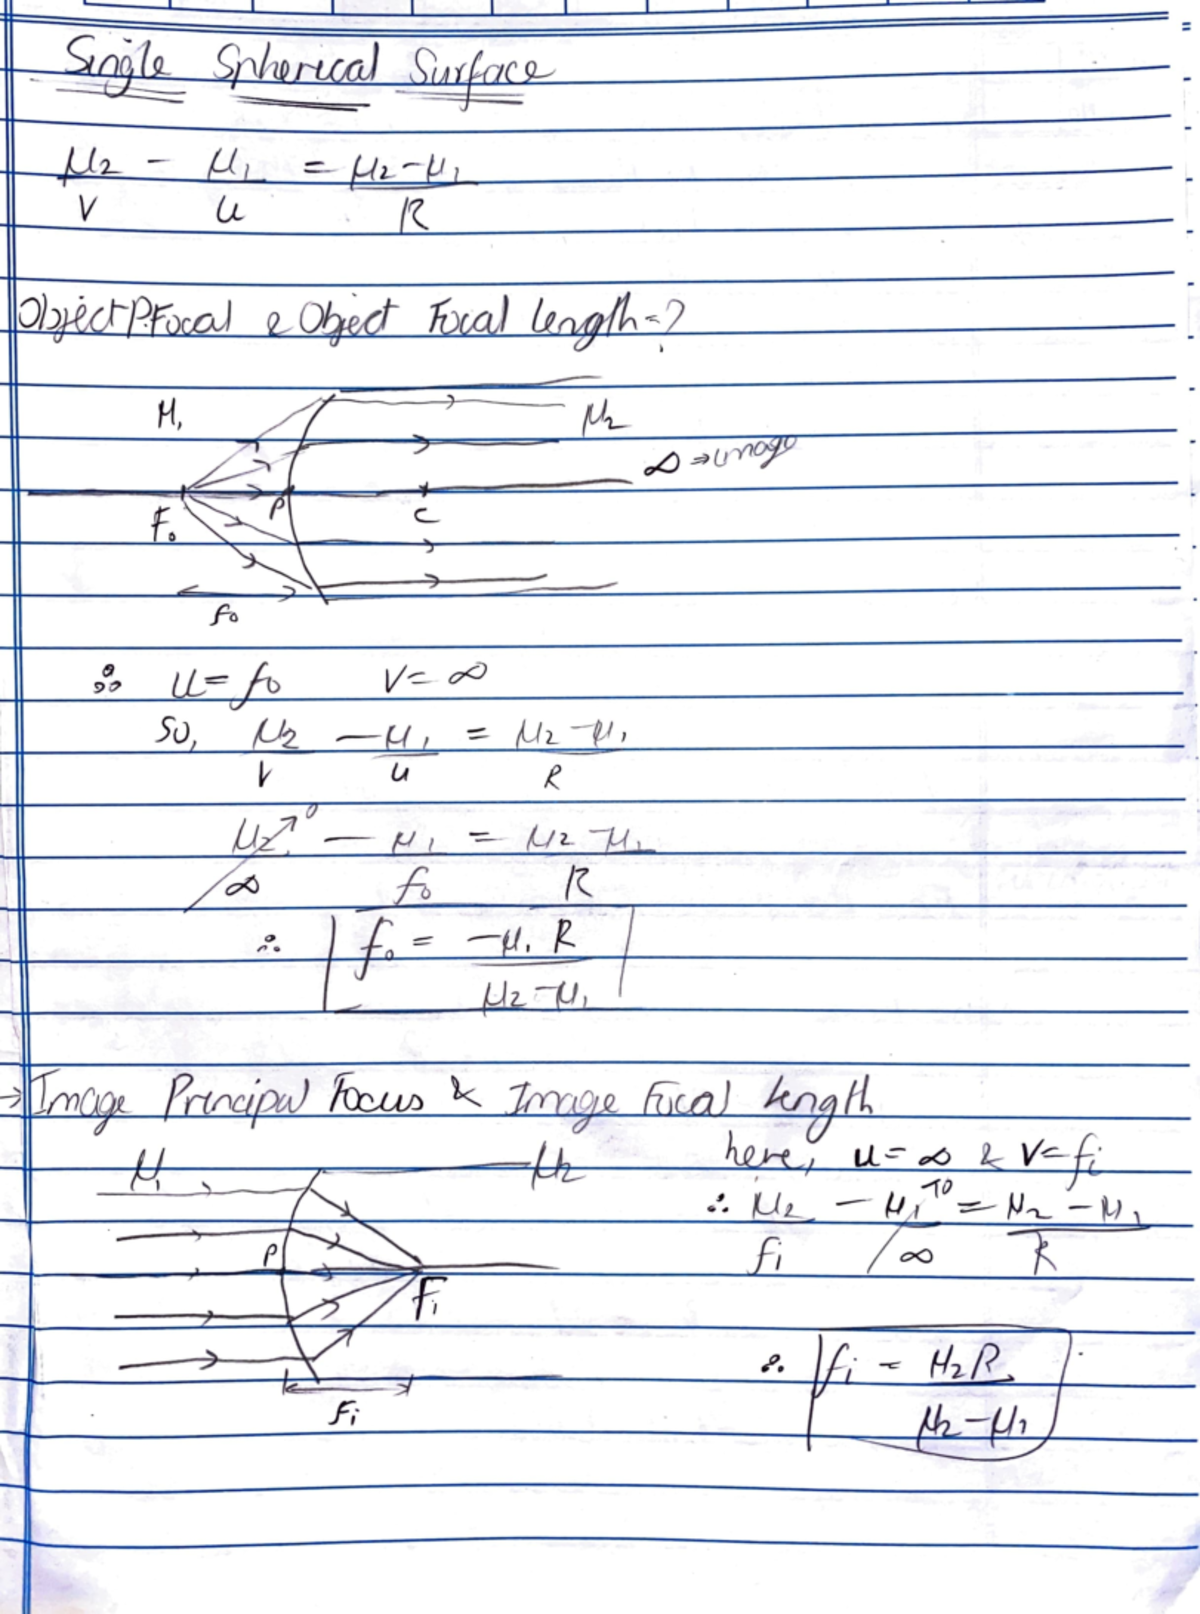 Single Spherical Surface
μ2/v - μ1/u = μ2-μ1/R
Object P.Focal & Object Focal length=?
μ1 μ2
∞ ⇒ image
F₀ P C
f₀
∴ u = f₀ v = ∞
So, μ2/v - μ1/u = μ2-μ1/R
μ2/∞ ↗0 - μ1/f₀ = μ2-μ1/R
∴ f₀ = -μ1 R/μ2-μ1
→ Image Principal Focus & Image Focal length
μ1 μ2
P Fi
fi
here, u = ∞ & v = fi
∴ μ2/fi - μ1/∞ ↗0 = μ2-μ1/R
∴ fi = μ2R/μ2-μ1